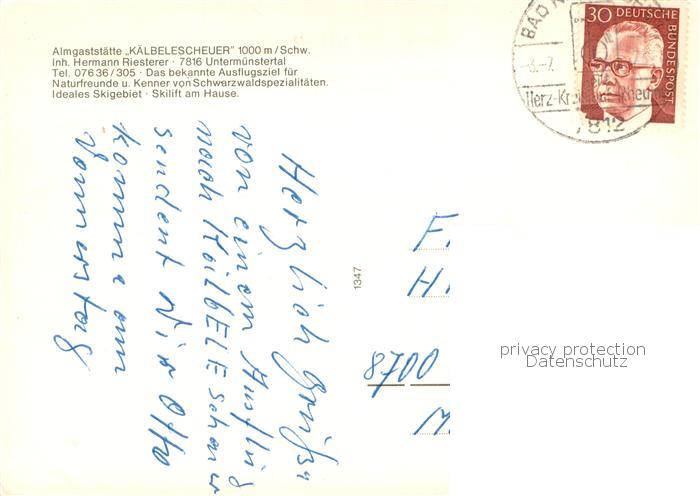 Almgaststätte „KÄLBELESCHEUER" 1000 m/Schw.
Inh. Hermann Riesterer · 7816 Untermünstertal
Tel. 07636/305 · Das bekannte Ausflugsziel für
Naturfreunde u. Kenner von Schwarzwaldspezialitäten.
Ideales Skigebiet · Skilift am Hause.
BAD K
30 DEUTSCHE BUNDESPOST
-3.-7.
Herz-Kreislauf-Rheuma
7812
Herzlich Grüße
von einem Ausflug
nach KälbELE Scheuer
sendent Dir Otto
komme am
Donnerstag
1347
F
H
8700
privacy protection
Datenschutz